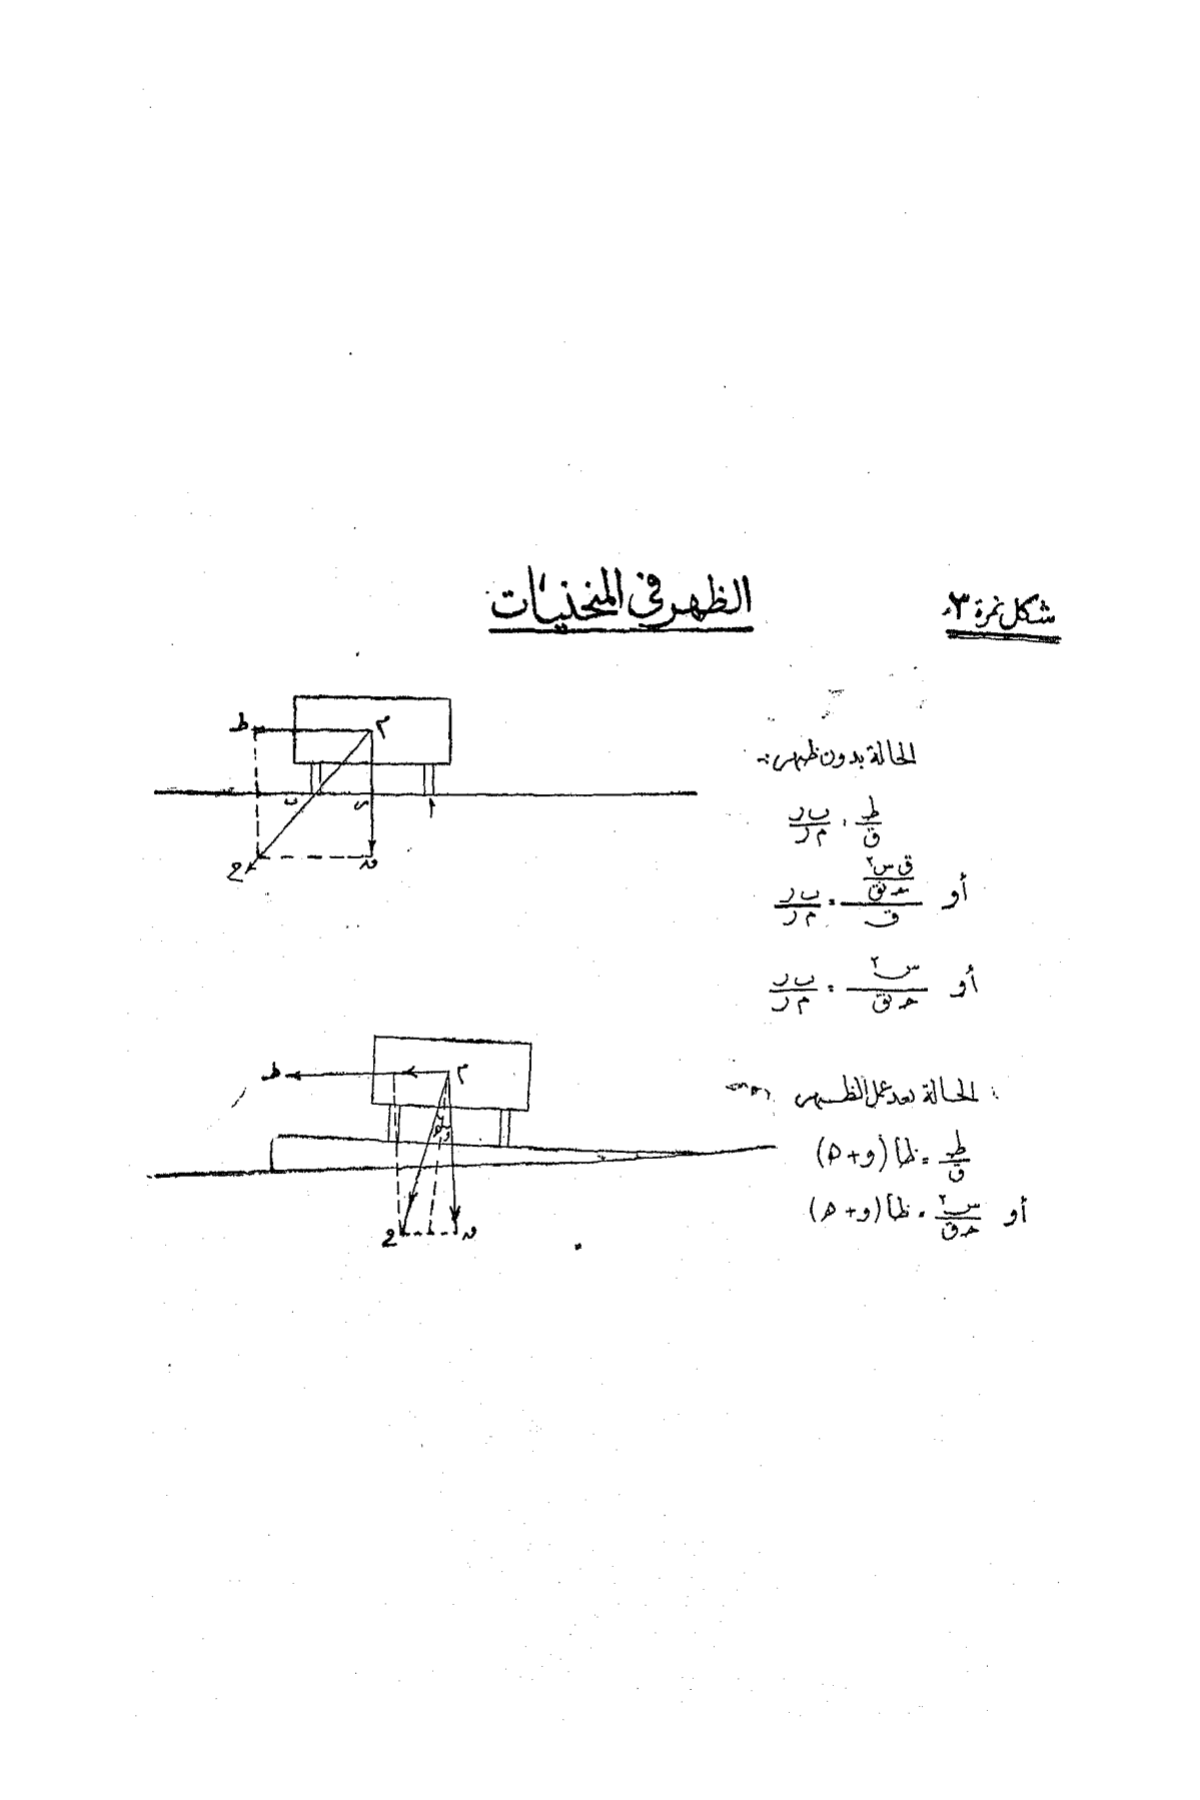 شكل نمرة ٣
الظهر في المنحنيات
الحالة بدون ظهر :-
ط/ق = ب ر/م ر
أو (ق س٢/حـ نق)/ق = ب ر/م ر
أو س٢/حـ نق = ب ر/م ر
ط
م
أ
ر
ب
ق
ح
الحالة بعد عمل الظهر
ط/ق = ظا (و + ه)
أو س٢/حـ نق = ظا (و + ه)
ط
م
و
ه
ق
ح